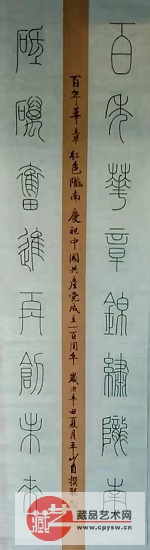 百年華章錦繡隴南
砥礪奮進再創未來
百年華章 紅色隴南 慶祝中國共產黨成立一百周年 歲次辛丑夏月平山自撰聯
藏品艺术网
www.cpysw.cn